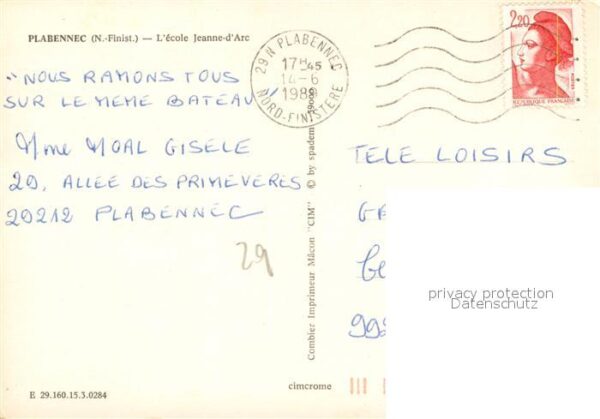 PLABENNEC (N.-Finist.) — L'école Jeanne-d'Arc
"NOUS RAMONS TOUS
SUR LE MEME BATEAU"
Mme MOAL GISELE
20, ALLEE DES PRIMEVERES
29212 PLABENNEC
29
E 29.160.15.3.0284
29 N PLABENNEC
17H45
14-6
1988
NORD-FINISTERE
2,20
REPUBLIQUE FRANÇAISE
Combier Imprimeur Mâcon "CIM" © by spadem
cimcrome
TELE LOISIRS
privacy protection
Datenschutz